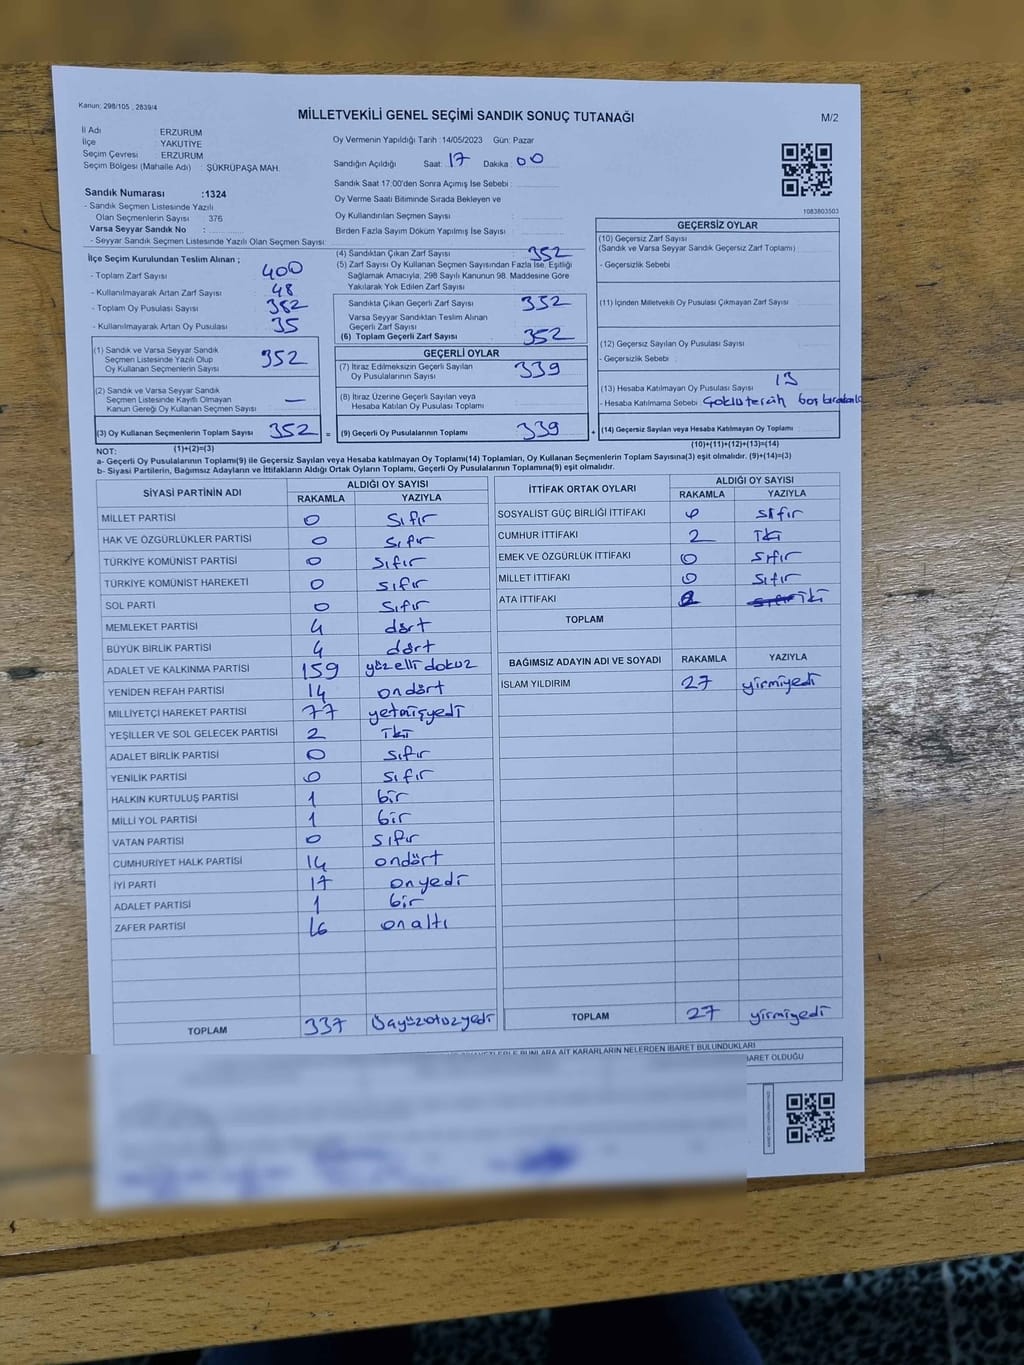 Kanun; 298/105 , 2839/4
MİLLETVEKİLİ GENEL SEÇİMİ SANDIK SONUÇ TUTANAĞI
M/2
İl Adı ERZURUM
İlçe YAKUTİYE
Seçim Çevresi ERZURUM
Seçim Bölgesi (Mahalle Adı) : ŞÜKRÜPAŞA MAH.
Oy Vermenin Yapıldığı Tarih :14/05/2023 Gün: Pazar
Sandığın Açıldığı Saat: 17 Dakika : 00
Sandık Saat 17:00'den Sonra Açımış İse Sebebi :
Oy Verme Saati Bitiminde Sırada Bekleyen ve
Oy Kullandırılan Seçmen Sayısı :
Birden Fazla Sayım Döküm Yapılmış İse Sayısı :
1083803503
Sandık Numarası :1324
- Sandık Seçmen Listesinde Yazılı
Olan Seçmenlerin Sayısı : 376
Varsa Seyyar Sandık No :
- Seyyar Sandık Seçmen Listesinde Yazılı Olan Seçmen Sayısı:
İlçe Seçim Kurulundan Teslim Alınan ;
- Toplam Zarf Sayısı 400
- Kullanılmayarak Artan Zarf Sayısı 48
- Toplam Oy Pusulası Sayısı : 382
- Kullanılmayarak Artan Oy Pusulası : 35
(1) Sandık ve Varsa Seyyar Sandık
Seçmen Listesinde Yazılı Olup
Oy Kullanan Seçmenlerin Sayısı 352
(2) Sandık ve Varsa Seyyar Sandık
Seçmen Listesinde Kayıtlı Olmayan
Kanun Gereği Oy Kullanan Seçmen Sayısı —
(3) Oy Kullanan Seçmenlerin Toplam Sayısı 352 =
(1)+(2)=(3)
(4) Sandıktan Çıkan Zarf Sayısı 352
(5) Zarf Sayısı Oy Kullanan Seçmen Sayısından Fazla İse, Eşitliği
Sağlamak Amacıyla, 298 Sayılı Kanunun 98. Maddesine Göre
Yakılarak Yok Edilen Zarf Sayısı
Sandıkta Çıkan Geçerli Zarf Sayısı 352
Varsa Seyyar Sandıktan Teslim Alınan
Geçerli Zarf Sayısı
(6) Toplam Geçerli Zarf Sayısı 352
GEÇERLİ OYLAR
(7) İtiraz Edilmeksizin Geçerli Sayılan
Oy Pusulalarının Sayısı 339
(8) İtiraz Üzerine Geçerli Sayılan veya
Hesaba Katılan Oy Pusulaları Toplamı
(9) Geçerli Oy Pusulalarının Toplamı 339 +
GEÇERSİZ OYLAR
(10) Geçersiz Zarf Sayısı
(Sandık ve Varsa Seyyar Sandık Geçersiz Zarf Toplamı)
- Geçersizlik Sebebi :
(11) İçinden Milletvekili Oy Pusulası Çıkmayan Zarf Sayısı
(12) Geçersiz Sayılan Oy Pusulası Sayısı
- Geçersizlik Sebebi
(13) Hesaba Katılmayan Oy Pusulası Sayısı 13
- Hesaba Katılmama Sebebi Çoklu tercih boş
(14) Geçersiz Sayılan veya Hesaba Katılmayan Oy Toplamı
(10)+(11)+(12)+(13)=(14)
NOT:
a- Geçerli Oy Pusulalarının Toplamı(9) ile Geçersiz Sayılan veya Hesaba katılmayan Oy Toplamı(14) Toplamları, Oy Kullanan Seçmenlerin Toplam Sayısına(3) eşit olmalıdır. (9)+(14)=(3)
b- Siyasi Partilerin, Bağımsız Adayların ve İttifakların Aldığı Ortak Oyların Toplamı, Geçerli Oy Pusulalarının Toplamına(9) eşit olmalıdır.
SİYASİ PARTİNİN ADI ALDIĞI OY SAYISI
RAKAMLA YAZIYLA
MİLLET PARTİSİ 0 Sıfır
HAK VE ÖZGÜRLÜKLER PARTİSİ 0 Sıfır
TÜRKİYE KOMÜNİST PARTİSİ 0 Sıfır
TÜRKİYE KOMÜNİST HAREKETİ 0 Sıfır
SOL PARTİ 0 Sıfır
MEMLEKET PARTİSİ 4 dört
BÜYÜK BİRLİK PARTİSİ 4 dört
ADALET VE KALKINMA PARTİSİ 159 yüzelli dokuz
YENİDEN REFAH PARTİSİ 14 ondört
MİLLİYETÇİ HAREKET PARTİSİ 77 yetmişyedi
YEŞİLLER VE SOL GELECEK PARTİSİ 2 İki
ADALET BİRLİK PARTİSİ 0 sıfır
YENİLİK PARTİSİ 0 Sıfır
HALKIN KURTULUŞ PARTİSİ 1 bir
MİLLİ YOL PARTİSİ 1 bir
VATAN PARTİSİ 0 Sıfır
CUMHURİYET HALK PARTİSİ 14 ondört
İYİ PARTİ 17 onyedi
ADALET PARTİSİ 1 bir
ZAFER PARTİSİ 16 onaltı
TOPLAM 337 Üçyüzotuzyedi
İTTİFAK ORTAK OYLARI ALDIĞI OY SAYISI
RAKAMLA YAZIYLA
SOSYALİST GÜÇ BİRLİĞİ İTTİFAKI 0 sıfır
CUMHUR İTTİFAKI 2 İki
EMEK VE ÖZGÜRLÜK İTTİFAKI 0 Sıfır
MİLLET İTTİFAKI 0 Sıfır
ATA İTTİFAKI 2 iki
TOPLAM
BAĞIMSIZ ADAYIN ADI VE SOYADI RAKAMLA YAZIYLA
İSLAM YILDIRIM 27 yirmiyedi
TOPLAM 27 yirmiyedi
BUNLARA AİT KARARLARIN NELERDEN İBARET BULUNDUKLARI
İBARET OLDUĞU